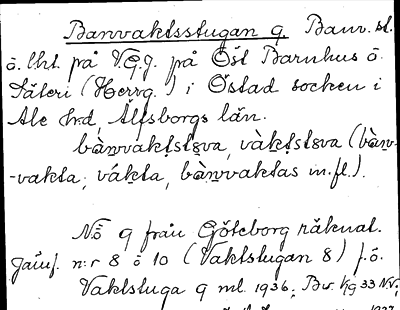 Banvaktsstugan 9. Banv.st.
ö. lht. på V.G.J. på Öst Barnhus ö.
Säteri (Herrg.) i Östad socken i
Ale hrd, Älfsborgs län.
bànvaktstɞva, vàktstɞva (bàn-
-vakta, vákta, bànvaktas m.fl.).
No 9 från Göteborg räknat.
Jämf. n:r 8 o 10 (Vaktstugan 8) f.ö.
Vaktstuga 9 ml. 1936; Bv. 1933 NV;